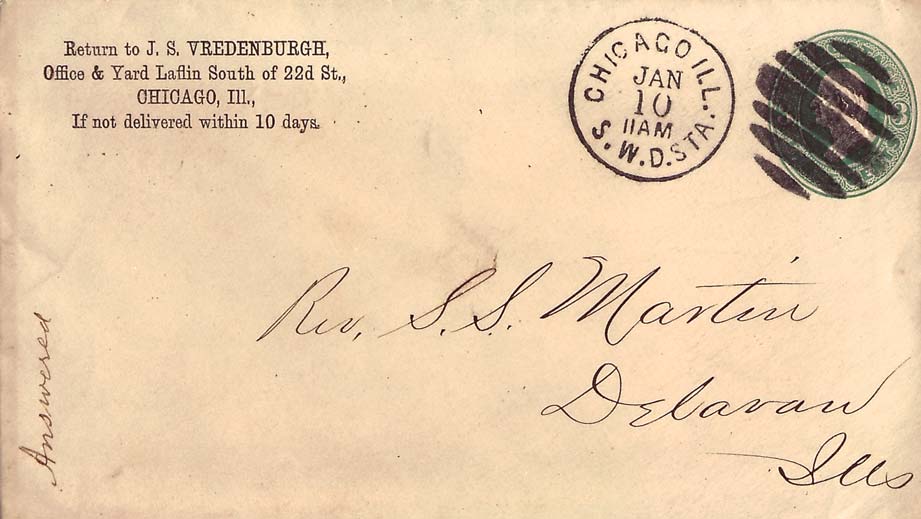 Return to J. S. VREDENBURGH,
Office & Yard Laflin South of 22d St.,
CHICAGO, Ill.,
If not delivered within 10 days.
CHICAGO ILL.
JAN
10
11AM
S.W.D.STA.
Rev. S. S. Martin
Delavan
Ills
Answered